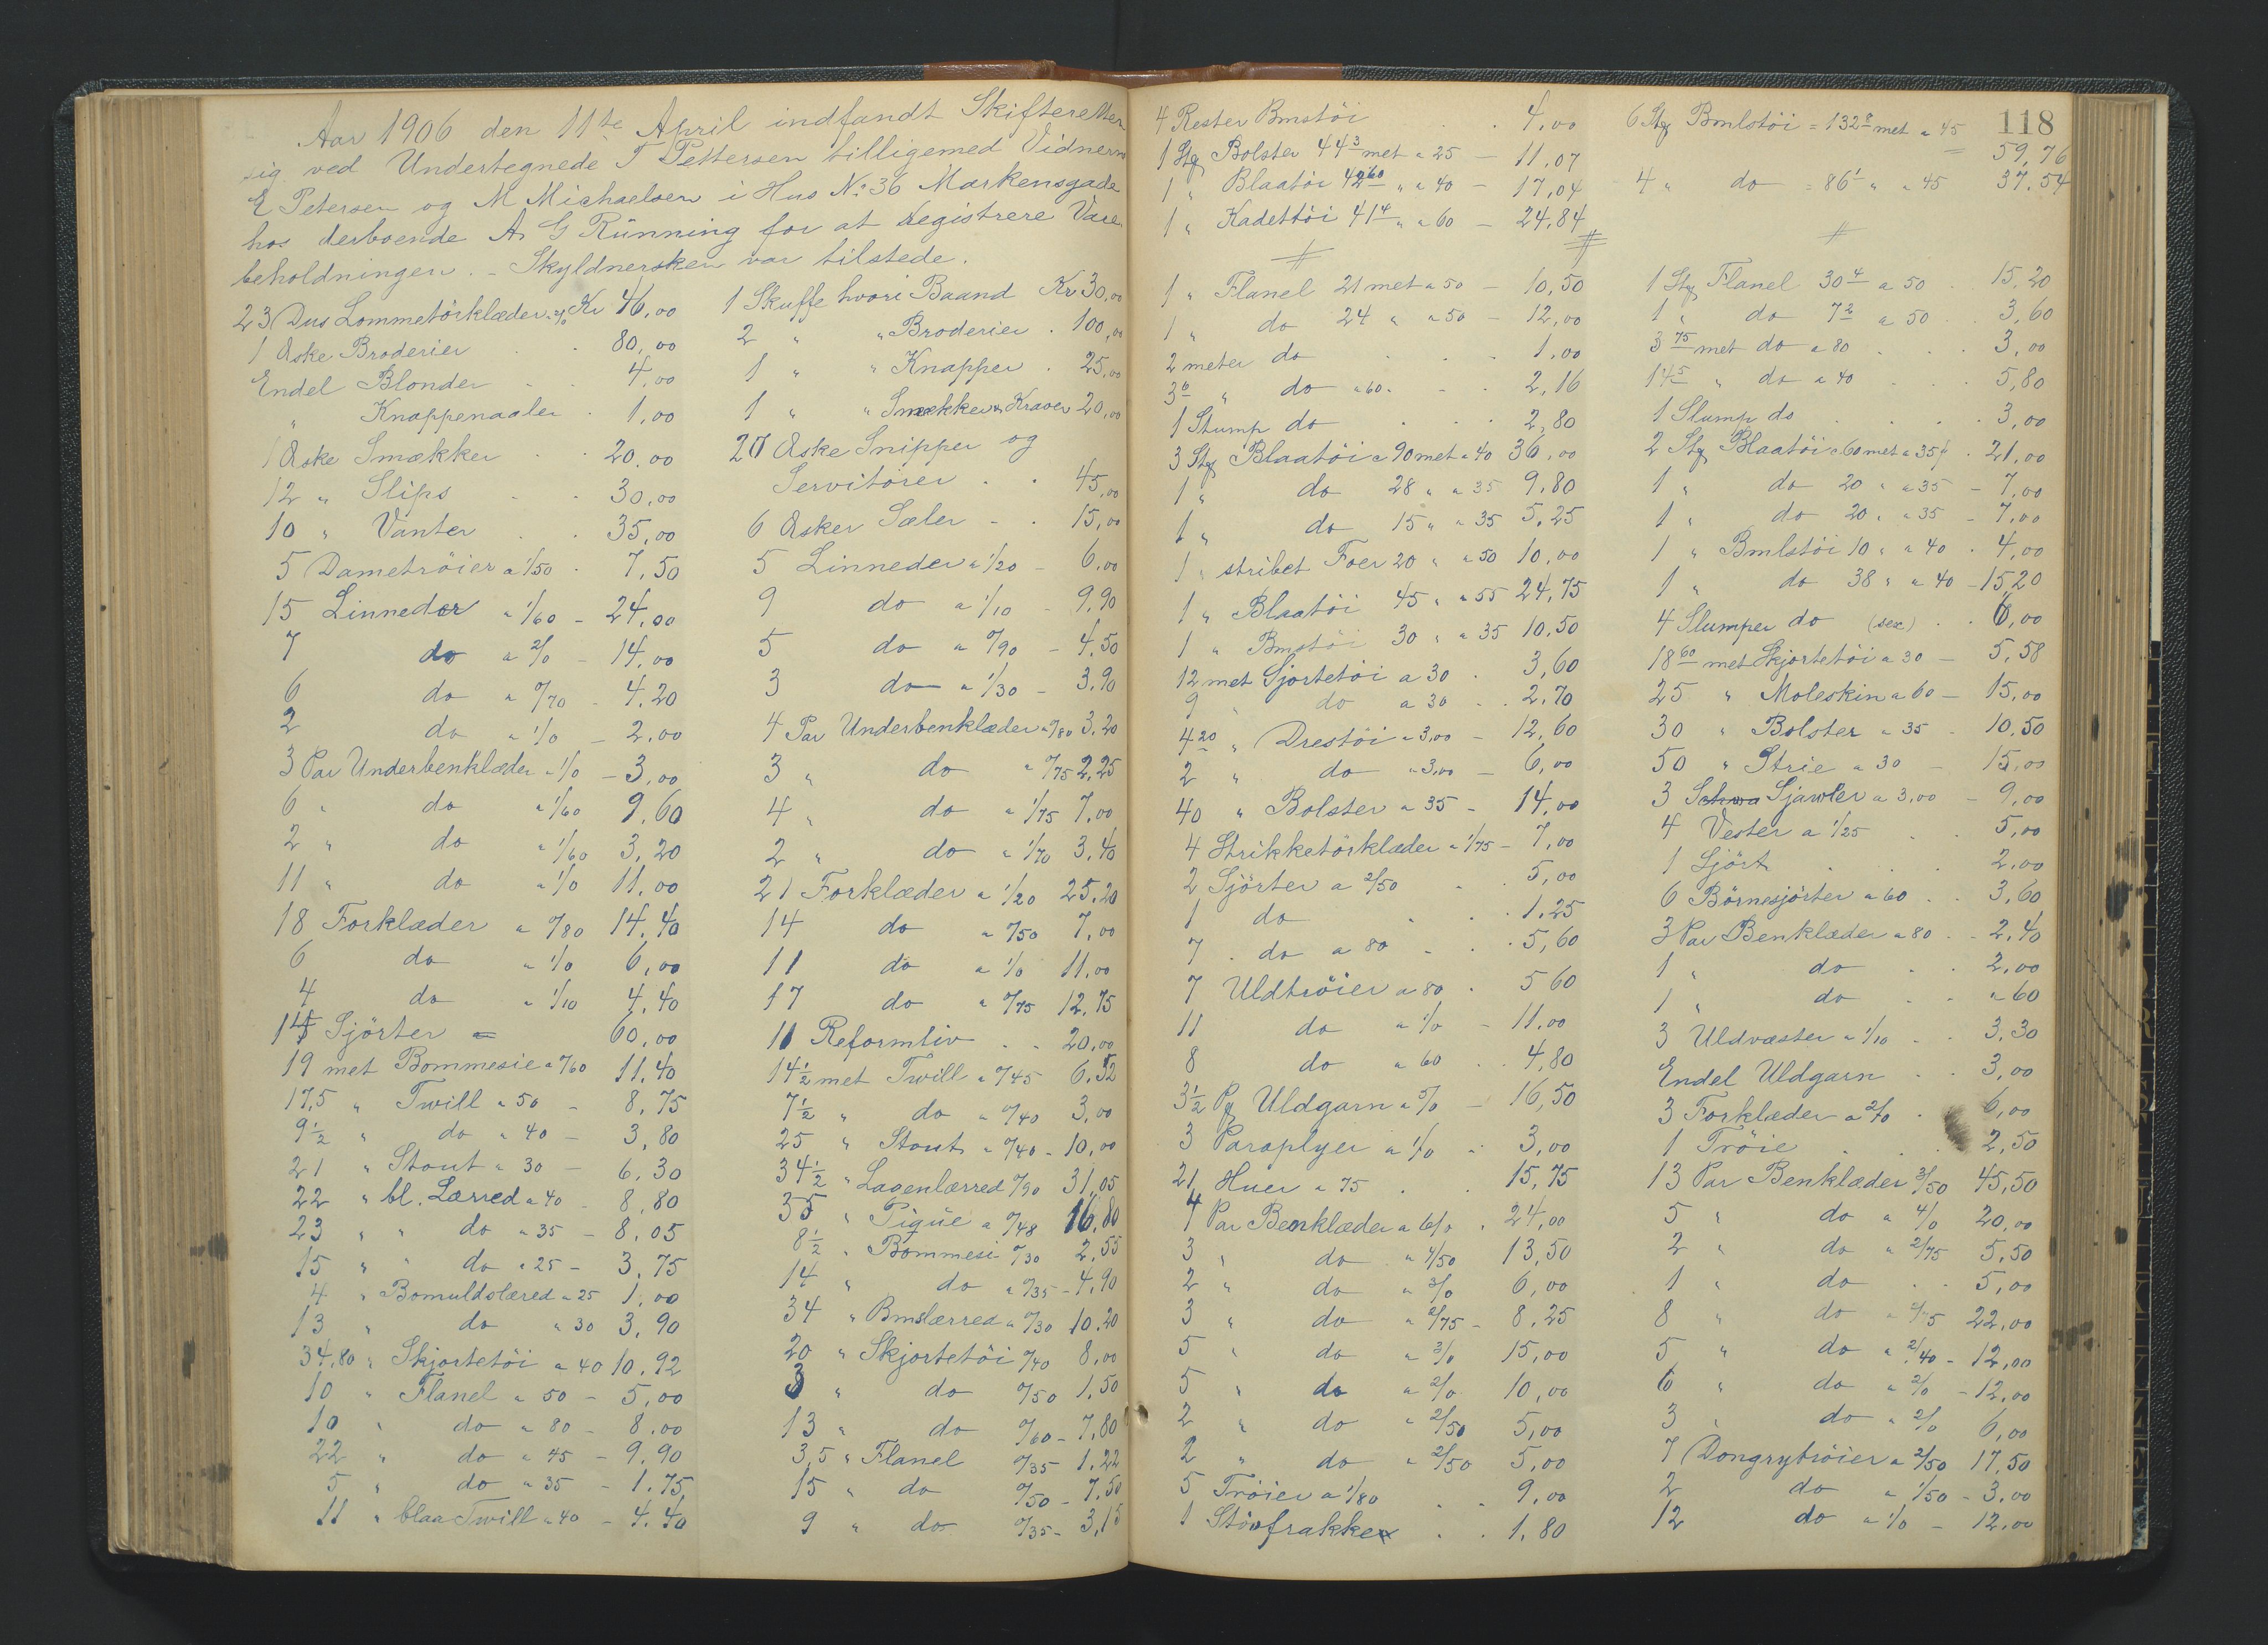 Aar 1906 den 11te April indfandt Skifteretten
sig ved Undertegnede T Pettersen tilligemed Vidnerne
E Petersen og M Michaelsen i Hus No 36 Markensgade
hos derboende A G Rünning for at Registrere Vare
beholdningen. - Skyldnersken var tilstede.
23 Dus Lommetörklæder a 2/0 Kr 46,00
1 Æske Broderier . . 80,00
Endel Blonder - . 4,00
" Knappenaaler . 1,00
1 Æske Smækker . . 20.00
12 " Slips - . 30,00
10 " Vanter . . 35,00
5 Dametröier a 1/50 . 7,50
15 Linneder a 1/60 - 24,00
7 do a 2/0 - 14,00
6 do a 0/70 - 4,20
2 do a 1/0 - 2,00
3 Par Underbenklæder a 1/0 - 3,00
6 " do a 1/60 9,60
2 " do a 1/60 3,20
11 " do a 1/0 11,00
18 Forklæder a 0/80 14,40
6 do a 1/0 6,00
4 do a 1/10 4,40
Sjörter 60,00
19 met Bommesie a 0/60 11,40
17,5 " Twill a 50 - 8,75
9 1/2 " do a 40 - 3,80
21 " Stout a 30 - 6,30
22 " bl. Lærred a 40 - 8,80
23 " " do a 35 - 8,05
15 " " do a 25 - 3,75
4 " Bomuldslæred a 25 1,00
13 " do a 30 3,90
34,80 " Skjortetöi a 40 10,92
10 " Flanel a 50 - 5,00
10 " do a 80 - 8,00
22 " do a 45 - 9,90
5 " do a 35 - 1.75
11 " blaa Twill a 40 - 4.40
1 Skuffe hvori Baand Kr 30,00
2 " " Broderier . 100,00
1 " " Knapper . 25,00
1 " " Smækker & Kraver 20,00
20 Æske Snipper og
Servitörer . . 45,00
6 Æsker Sæler - . 15,00
5 Linneder a 1/20 - 6,00
9 do a 1/10 - 9,90
5 do a 0/90 - 4,50
3 do a 1/30 - 3,90
4 Par Underbenklæder a 0/80 3,20
3 " do a 0/75 2,25
4 " do a 1/75 7,00
2 " do a 1/70 3,40
21 Forklæder a 1/20 25,20
14 do a 0/50 7,00
11 do a 1/0 11,00
17 do a 0/75 12,75
11 Reformliv . . 20,00
14 1/2 met Twill a 0/45 6,52
7 1/2 " do a 0/40 3,00
25 " Stout a 0/40 - 10,00
34 1/2 " Lagenlærred 0/90 31,05
35 " Piqüe a 0/48 16,80
8 1/2 " Bommesi 0/30 2,55
14 " do a 0/35 - 4,90
34 " Bmslærred a 0/30 10,20
20 " Skjortetöi 0/40 8,00
3 " do 0/50 1,50
13 " do 0/60 - 7,80
3,5 " Flanel 0/35 1,22
15 " do 0/50 - 7,50
9 " do 0/35 - 3,15
4 Rester Bmstöi . . 4,00
1 Stg Bolster 44 3 met a 25 - 11,07
1 " Blaatöi 42 60 " a 40 - 17,04
1 " Kadettöi 41 4 " a 60 - 24,84
1 " Flanel 21 met a 50 - 10,50
1 " do 24 " a 50 - 12,00
2 meter do . . . 1,00
3 6 " do a 60 . - . 2,16
1 Stump do . . . 2,80
3 Stg Blaatöi a 90 met a 40 36,00
1 " do 28 " a 35 9,80
1 " do 15 " a 35 5,25
1 " stribet Foer 20 " a 50 10,00
1 " Blaatöi 45 " a 55 24,75
1 " Bmstöi 30 " a 35 10,50
12 met Sjortetöi a 30 . 3,60
9 " do a 30 . . 2,70
4 20 " Drestöi a 3,00 - 12,60
2 " do a 3,00 - 6,00
40 " Bolster a 35 - 14,00
4 Strikketörklæder a 1/75 - 7,00
2 Sjörter a 2/50 . . 5,00
1 do . . . 1,25
7 . do a 80 - . . 5,60
7 Uldtröier a 80 . 5 60
11 do a 1/0 - 11,00
8 do a 60 . . 4,80
3 1/2 Pg Uldgarn a 5/0 - 16,50
3 Paraplyer a 1/0 . 3,00
21 Huer a 75 . . 15,75
4 Par Benklæder a 6/0 . 24,00
3 " do a 4/50 13,50
2 " do a 3/0 6,00
3 " do a 2/75 - 8,25
5 " do a 3/0 15,00
5 " do a 2/0 10,00
2 " do a 2/50 5,00
2 " do a 2/50 5,00
5 Tröier a 1/80 . . 9,00
1 Stövfrakke . . 1,80
118
6 Stg Bmlstöi = 132 8 met a 45
59,76
4 " do = 86 1 " a 45 37.54
1 Stg Flanel 30 4 a 50 . 15,20
1 " do 7 2 a 50 . . 3,60
3 75 met do a 80 . . . 3,00
14 5 " do a 40 . . . 5,80
1 Slump do . . . . 3,00
2 Stg Blaatöi a 60 met a 35 . 21,00
1 " do 20 " a 35 - 7,00
1 " do 20 " a 35 - 7,00
1 " Bmlstöi 10 " a 40 . 4,00
1 " do 38 " a 40 - 15,20
4 Slumper do (sex) . . 6,00
18 60 met Skjortetöi a 30 - 5,58
25 " Moleskin a 60 - 15,00
30 " Bolster a 35 . 10,50
50 " Strie a 30 - 15,00
3 Sjawler a 3,00 - 9,00
4 Vester a 1/25 . . 5,00
1 Sjört . . . 2,00
6 Börnesjörter a 60 . . 3,60
3 Par Benklæder a 80 . . 2,40
1 " do . . 2,00
1 " do . . " 60
3 Uldvæster a 1/10 . . 3,30
Endel Uldgarn . . 3,00
3 Forklæder a 2/0 . 6,00
1 Tröie . . . 2,50
13 Par Benklæder 3/50 45,50
5 " do a 4/0 20,00
2 " do a 2/75 5,50
1 " do . . 5,00
8 " do a 2/75 22,00
5 " do a 2/40 - 12,00
6 " do a 2/0 - 12,00
3 " do a 2/0 6,00
7 Dongrytröier a 2/50 17,50
2 do a 1/50 - 3,00
12 do a 1/0 - 12,00